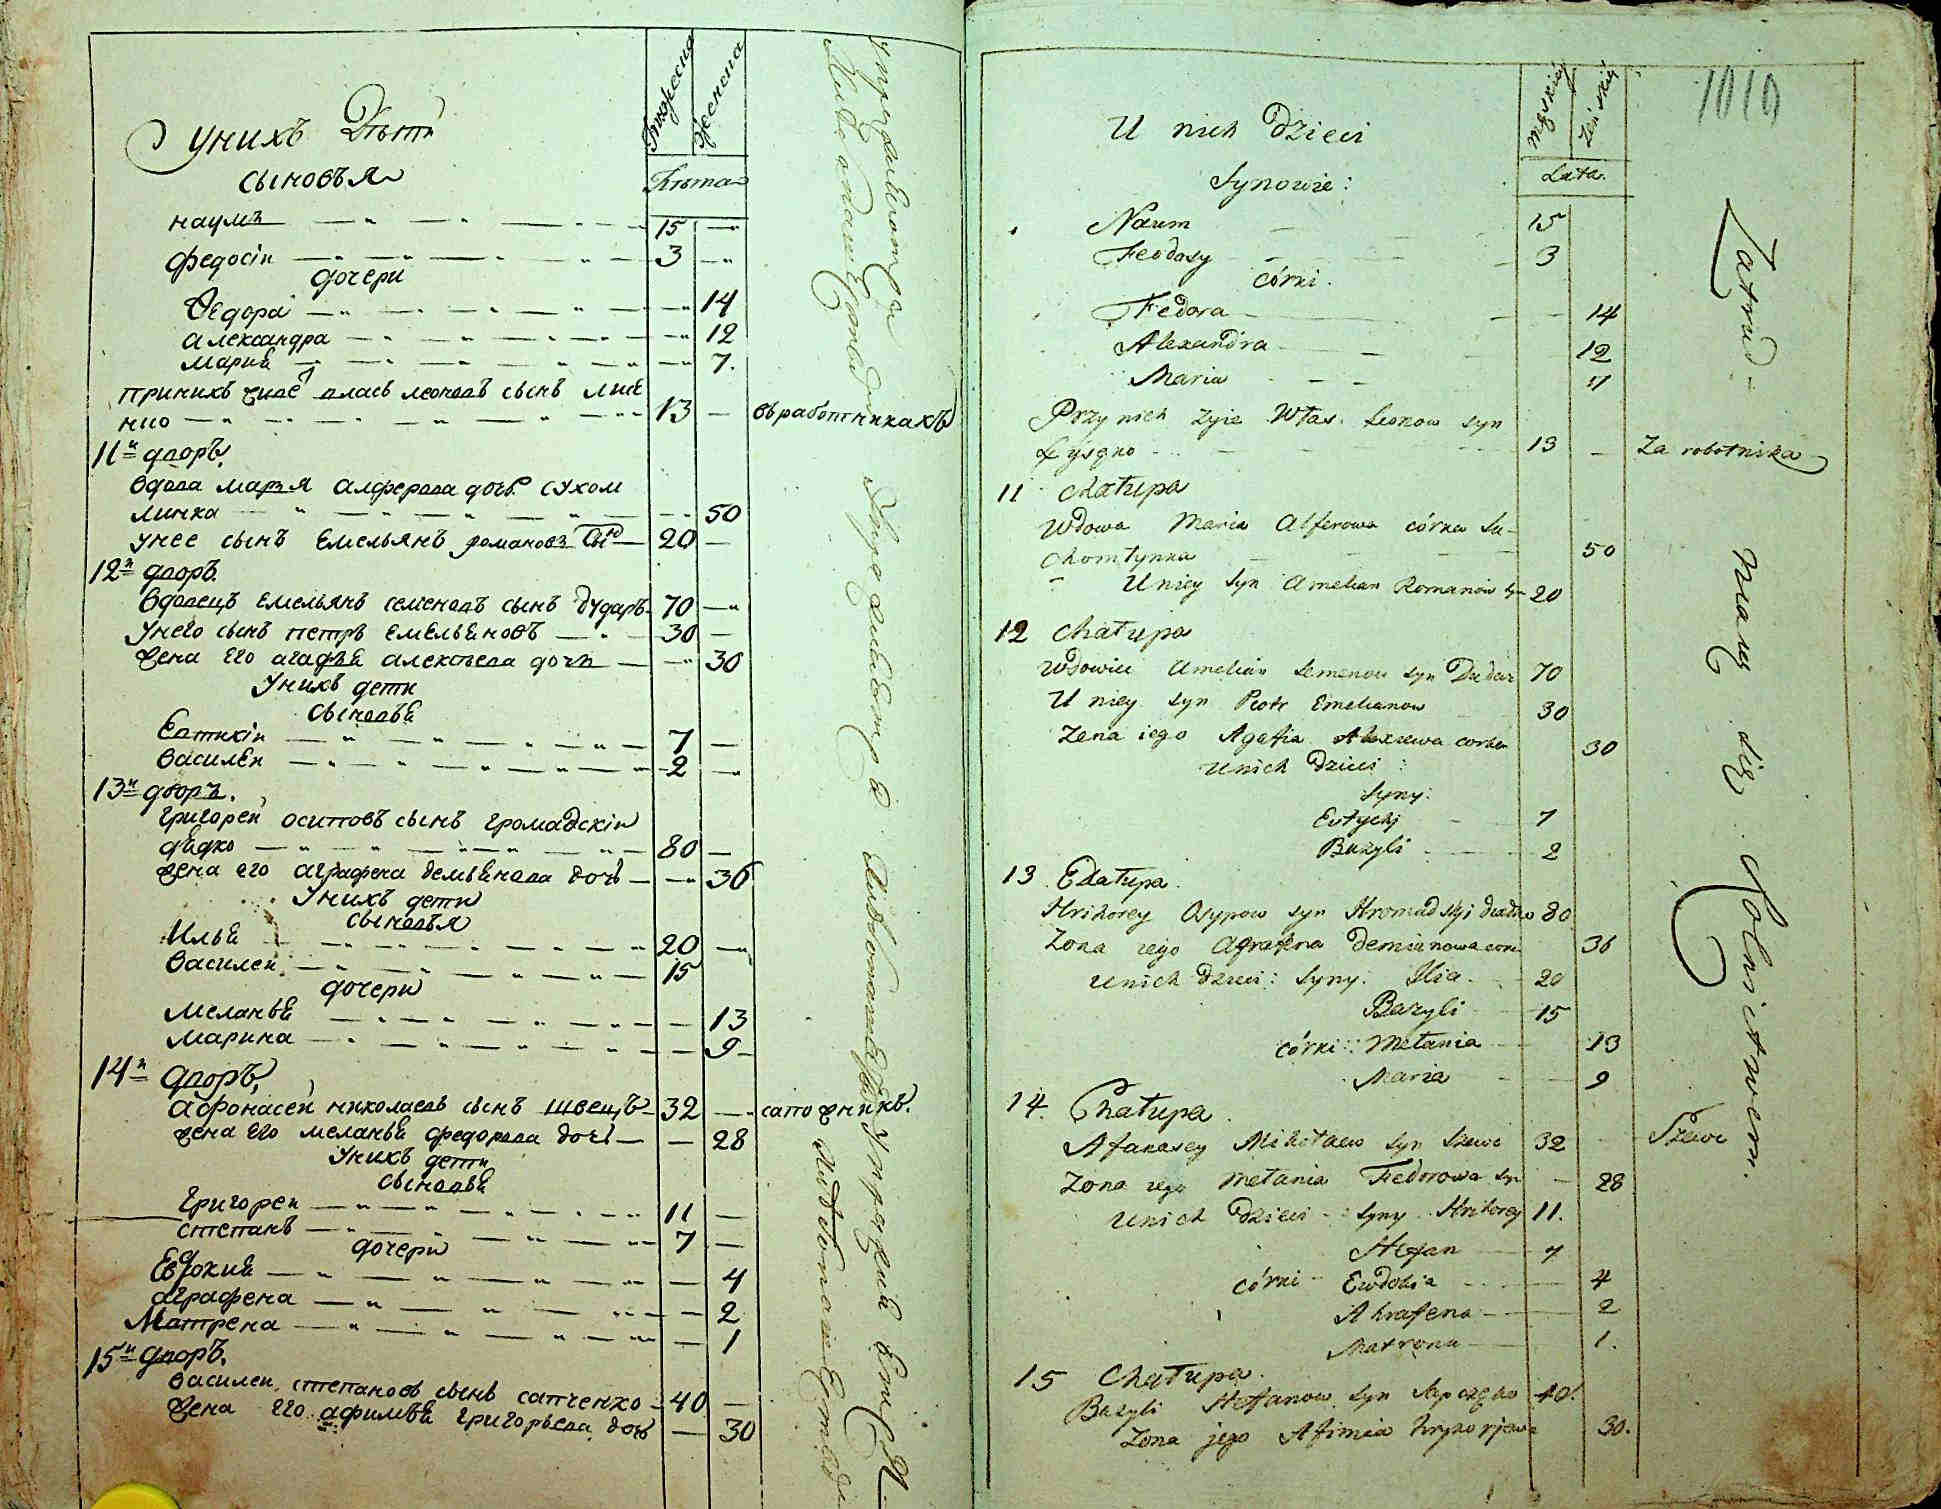 У нихъ Дѣти
сыновья
Лѣта
наумъ 15
федосіи 3
дочери
Ѳедора 14
александра 12
мариа 7.
13 въ работникахъ
11й дворъ.
вдова марья алферова дочь сухом
линка 50
у нее сынъ Емельянъ романовъ сынъ 20
12й дворъ.
вдовецъ емельянъ семеновъ сынъ дударь 70
у него сынъ петръ емельяновъ 30
жена его агафья алексѣева дочь 30
У нихъ дети
сыновья
Евтихіи 7
василеи 2
13й дворъ.
григореи осиповъ сынъ громадскіи
дядко 80
жена его аграфена демьянова дочь 36
У нихъ дети
сыновья
Илья 20
василеи 15
дочери
меланья 13
марина 9
14й дворъ,
афонасеи николаевъ сынъ швецъ 32 сапожникъ.
жена его меланья федорова дочь 28
У нихъ дети
сыновья
григореи 11
степанъ 7
дочери
Евдокия 4
аграфена 2
Матрена 1
15й дворъ.
василеи степановъ сынъ сапченко 40
жена его афимья григорьева дочь 30
1019
U nich Dzieci
Synowie:
Męzskiey
Lata.
Naum 15
Feodosy 3
Córki.
Fedora 14
Alexandra 12
Maria 7
Przy nich zyie Włas. Leonow syn
13 Za robotnika
11 Chałupa
Wdowa Maria Alferowa córka Su-
chomłynka 50
U niey syn Amelian Romanow syn 20
12 Chałupa
Wdowiec Amelian Semenow syn Dudar 70
U niey syn Piotr Emelianow 30
Zena iego Agafia Alexiewa corka 30
U nich Dzieci:
Syny:
Eutychj 7
Bazyli 2
13 Chałupa.
Hrihorey Osypow syn Hromadskyi 80
Zona iego Agrafena Demianowa 36
U nich Dzieci: Syny: Ilia 20
Bazyli 15
córki: Mełania 13
Maria 9
14. Chałupa.
Afanasey Mikołaew syn Szewc 32 Szewc
Zona iego Mełania Fedorowa syn 28
U nich Dzieci Syny Hrihorey 11.
Stefan 7
córki Ewdokia 4
Ahrafena 2
Matrona 1.
15 Chałupa.
Bazyli Stefanow syn Sapczenko 40.
Zona jego Afimia Hryhorjewa 30.
Zatrud-
niaią się Rolnictwem.